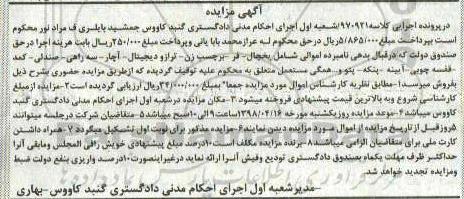 آگهی مزایده
درپرونده اجرایی کلاسه۹۷۰۹۲۱/شعبه اول اجرای احکام مدنی دادگستری گنبد کاووس جمشید بایلری ف مراد نور محکوم
است بپرداخت مبلغ۵/۸۶۵/۰۰۰ریال درحق محکوم له عرازمحمد بابا یانی وپرداخت مبلغ۲۵۰/۰۰۰ریال بابت هزینه اجرا درحق
صندوق دولت که درقبال بدهی نامبرده اموالی شامل یخچال- فر- برچسب زن- ترازو دیجیتال- آچار- سه راهی- صندلی- کمد
قفسه چوبی- آیینه -پنکه- پتو و..همگی مستعمل متعلق به محکوم علیه توقیف گردیده که ازطریق مزایده حضوری بشرح ذیل
بفروش میرسد۱-مطابق نظریه کارشناس اموال مورد مزایده جمعا" بمبلغ۳۴/۰۰۰/۰۰۰ریال ارزیابی گردیده است۲-مزایده ازمبلغ
کارشناسی شروع وبه بالاترین قیمت پیشنهادی فروخته میشود ۳- مکان مزایده درشعبه اول اجرای احکام مدنی دادگستری گنبد
کاووس میباشد۴-موعد مزایده روزیکشنبه مورخه ۱۳۹۸/۰۴/۱۶ازساعت ۹الی۱۰صبح میباشد۵-متقاضیان شرکت درجلسه میتوانند
۵روزقبل از تاریخ مزایده از اموال مورد مزایده دیدن نمایند۶- مزایده مذکور برای نوبت اول تشکیل میگردد ۷- همراه داشتن
کارت ملی برای متقاضیان الزامی میباشد۸-برنده مزایده مکلف است۱۰درصد مبلغ پیشنهادی خویش رافی المجلس ومابقی آنرا
حداکثر ظرف مهلت یکماه بصندوق دادگستری تودیع وفیش آنرا ارائه نماید درغیراینصورت۱۰درصد واریزی بنفع دولت ضبط
ومزایده تجدید خواهد شد.
-مدیرشعبه اول اجرای احکام مدنی دادگستری گنبد کاووس-بهاری